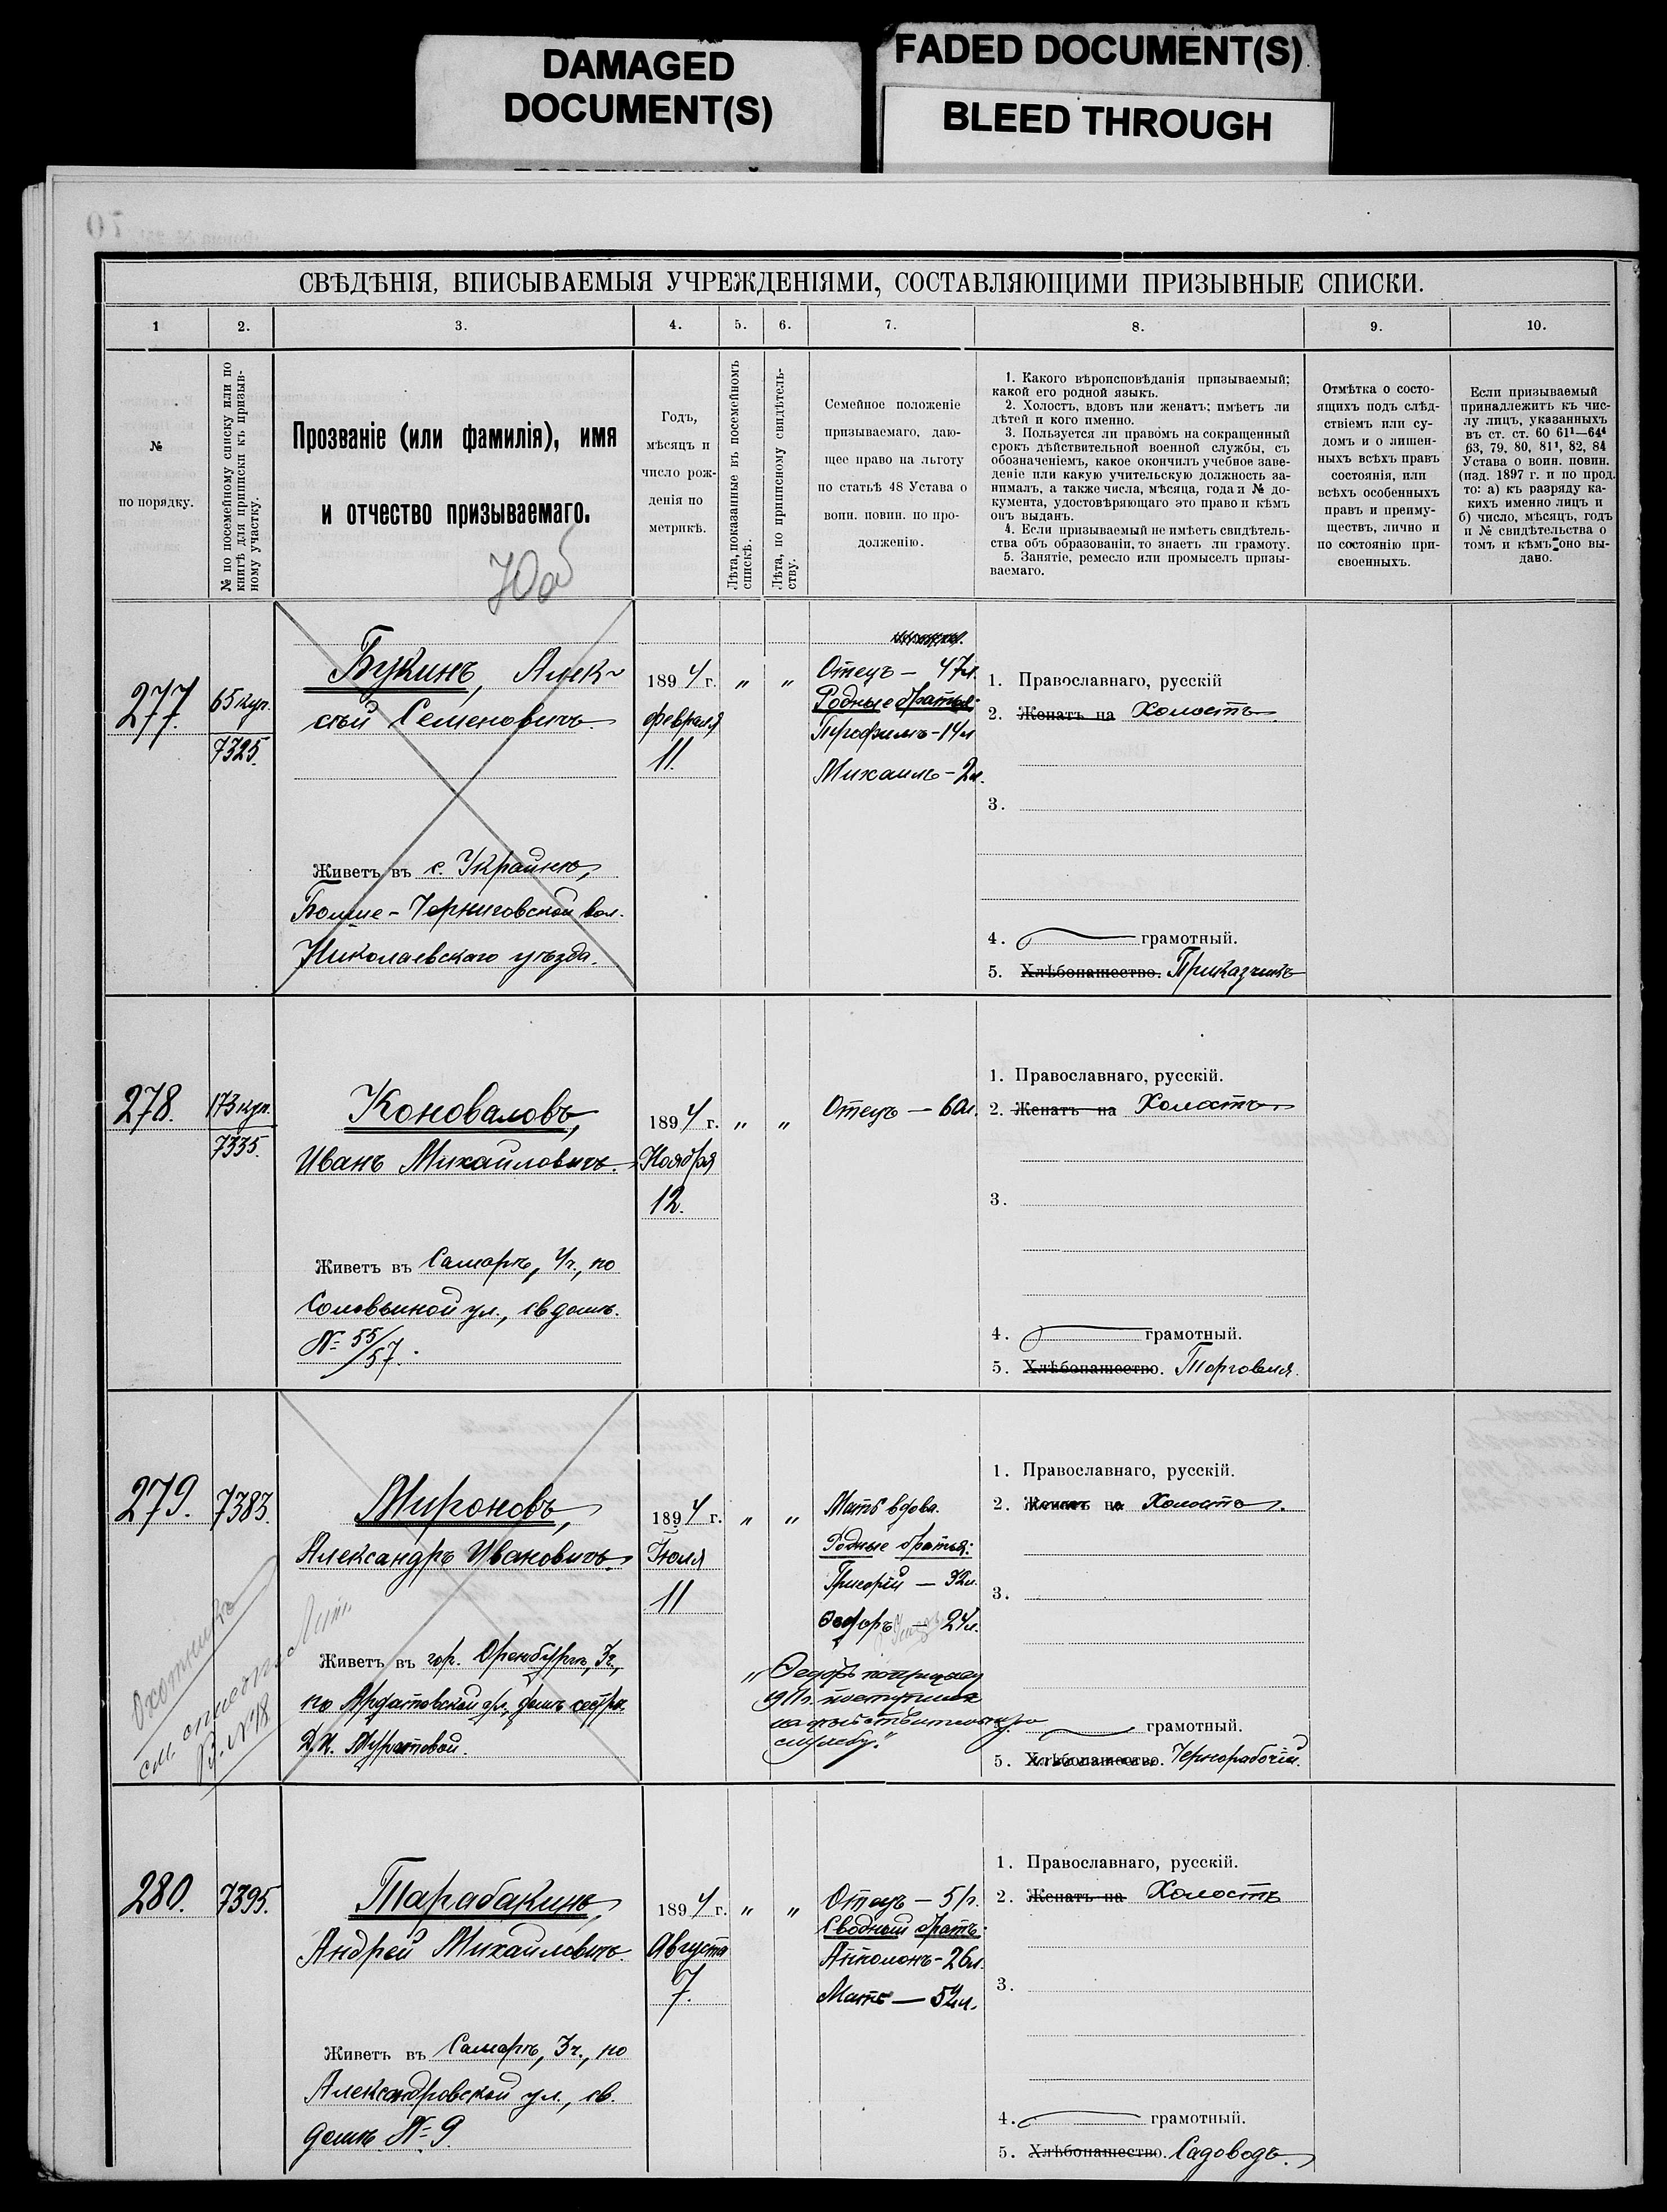 DAMAGED
DOCUMENT(S)
FADED DOCUMENT(S)
BLEED THROUGH
СВѢДѢНІЯ, ВПИСЫВАЕМЫЯ УЧРЕЖДЕНІЯМИ, СОСТАВЛЯЮЩИМИ ПРИЗЫВНЫЕ СПИСКИ.
1 2. 3. 4. 5. 6. 7. 8. 9. 10.
№
по порядку.
№ по посемейному списку или по
книгѣ для приписки къ призыв-
ному участку.
Прозваніе (или фамилія), имя
и отчество призываемаго.
70об
Годъ,
мѣсяцъ и
число рож-
денія по
метрикѣ.
Лѣта, показанные въ посемейномъ
спискѣ.
Лѣта, по приписному свидѣтель-
ству.
Семейное положеніе
призываемаго, даю-
щее право на льготу
по статьѣ 48 Устава о
воин. повин. по про-
долженію.
1. Какого вѣроисповѣданія призываемый;
какой его родной языкъ.
2. Холостъ, вдовъ или женатъ; имѣетъ ли
дѣтей и кого именно.
3. Пользуется ли правомъ на сокращенный
срокъ дѣйствительной военной службы, съ
обозначеніемъ, какое окончилъ учебное заве-
деніе или какую учительскую должность за-
нималъ, а также числа, мѣсяца, года и № до-
кумента, удостовѣряющаго это право и кѣмъ
онъ выданъ.
4. Если призываемый не имѣетъ свидѣтель-
ства объ образованіи, то знаетъ ли грамоту.
5. Занятіе, ремесло или промыселъ призы-
ваемаго.
Отмѣтка о состо-
ящихъ подъ слѣд-
ствіемъ или су-
домъ и о лишен-
ныхъ всѣхъ правъ
состоянія, или
всѣхъ особенныхъ
правъ и преиму-
ществъ, лично и
по состоянію при-
своенныхъ.
Если призываемый
принадлежитъ къ чис-
лу лицъ, указанныхъ
въ ст. ст. 60 61¹—64⁴
63, 79, 80, 81¹, 82, 84
Устава о воин. повин.
(изд. 1897 г. и по прод.
то: а) къ разряду ка-
кихъ именно лицъ и
б) число, мѣсяцъ, годъ
и № свидѣтельства о
томъ и кѣмъ оно вы-
дано.
277.
65 куп.
7325.
Букинъ, Алек-
сѣй Семеновичъ.
Живетъ въ с. Украинкѣ,
Больше-Черниговской вол.
Николаевскаго уѣзда.
1894 г.
февраля
11.
" "
Отецъ — 47 л.
Родные братья:
Трофимъ - 14 л
Михаилъ - 2 л.
1. Православнаго, русскій
2. Женатъ на Холостъ.
3.
4. грамотный.
5. Хлѣбопашество. Приказчикъ
278.
173 куп.
7335.
Коноваловъ,
Иванъ Михайловичъ.
Живетъ въ Самарѣ, 4 ч., по
Соловьиной ул., св. домъ.
№ 55/57.
1894 г.
Ноября
12.
" "
Отецъ — 60 л.
1. Православнаго, русскій.
2. Женатъ на Холостъ.
3.
4. грамотный.
5. Хлѣбопашество. Торговля.
279.
7383.
Охотникъ
см. списокъ
В. №18
Мироновъ,
Александръ Ивановичъ.
Живетъ въ гор. Оренбургѣ, 3 ч.,
по Ардатовской ул., домъ сестры
1894 г.
Іюля
11
" "
Мать вдова.
Родные братья:
Григорій — 32 л.
Ѳедоръ — 24 л.
"Ѳедоръ по призыву
1911 г. поступилъ
на дѣйствительную
службу."
1. Православнаго, русскій.
2. Женатъ на Холостъ.
3.
грамотный.
5. Хлѣбопашество. Чернорабочій.
280.
7395.
Тарабакинъ,
Андрей Михайловичъ.
Живетъ въ Самарѣ, 3 ч., по
Александровской ул., св.
домъ № 9.
1894 г.
Августа
7.
" "
Отецъ — 51 г.
Сводный братъ:
Апполонъ - 26 л.
Мать — 52 л.
1. Православнаго, русскій.
2. Женатъ на Холостъ
3.
4. грамотный.
5. Хлѣбопашество. Садоводъ.